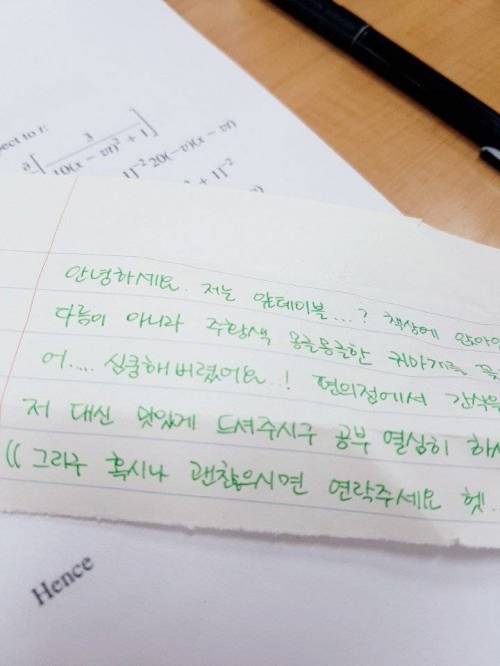 ect to t:
3
10(x − vt)² + 1
]⁻² 20(−v)(x − vt)
+ 1]⁻²
안녕하세요. 저는 앞테이블...? 책상에 앉아있
다름이 아니라 주황색 몽글몽글한 귀마개를
어.... 심쿵해버렸어요..! 편의점에서 간식을
저 대신 맛있게 드셔주시구 공부 열심히 하시
(( 그라구 혹시나 괜찮으시면 연락주세요 헷..
Hence